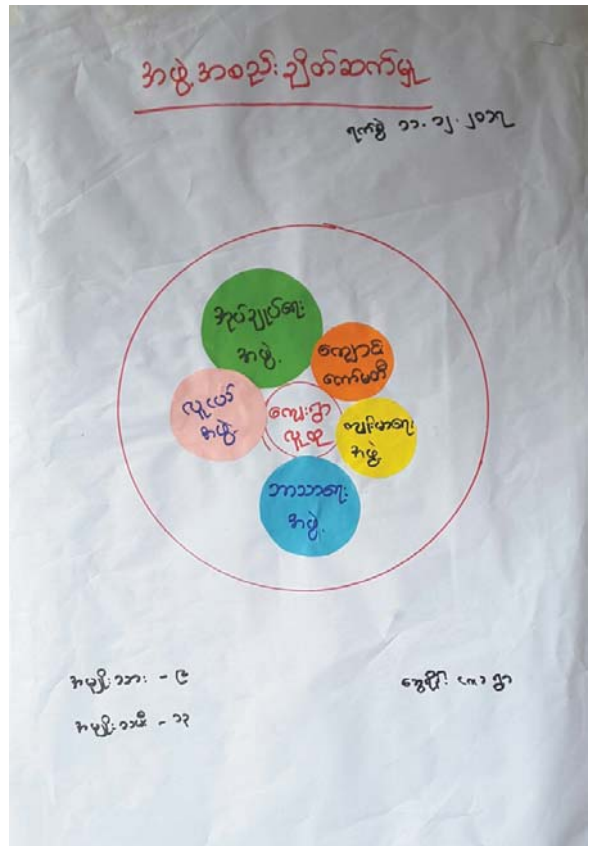 အဖွဲ့အစည်းချိတ်ဆက်မှု
ရက်စွဲ ၁၁.၁၂.၂၀၁၇
အုပ်ချုပ်ရေး
အဖွဲ့
ကျောင်း
ကော်မတီ
လူငယ်
အဖွဲ့
ကျေးရွာ
လူထု
ကျန်းမာရေး
အဖွဲ့
ဘာသာရေး
အဖွဲ့
အမျိုးသား - ၉
အမျိုးသမီး - ၁၃
ရွာ